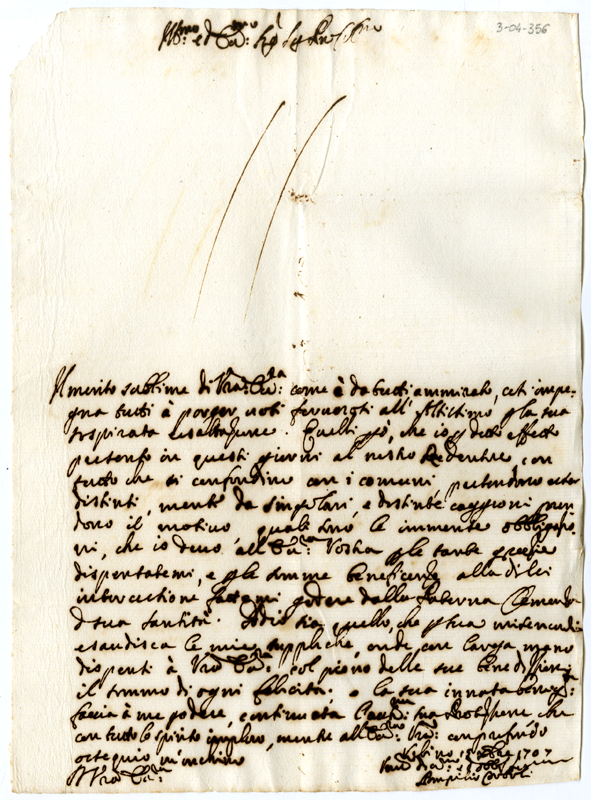 3-04-356
Il merito sublime di Vra Em.za come è da tutti ammirato, così impe-
gna tutti à porger voti fervorosi all'Altissimo p la sua
sospirata Esaltazione. Quelli però, che io p detto effetto
presento in questi giorni al nostro Redentore, con
tutto che si confondino con i comuni, pretendono esser
distinti, mentre da singolari, e distinte cagioni pren-
dono il motivo quali sono le immense obbligazio-
ni, che io devo all'Em.za Vostra p le tante grazie
dispensatemi, e p le somme beneficenze alla di lei
intercessione fattemi godere dalla Paterna Clemenza
di sua Santità. Iddio sia quello, che p sua misericordia
esaudisca le mie suppliche, onde con larga mano
dispensi à Vra Em.za col pieno delle sue benedizioni
il sommo di ogni felicità. e la sua innata
faccia à me godere, continuata la sua Protezione, che
con tutto lo spirito imploro, mentre all'Em.za Vra con profondo
ossequio m'inchino
Di Vra Em.za
1707